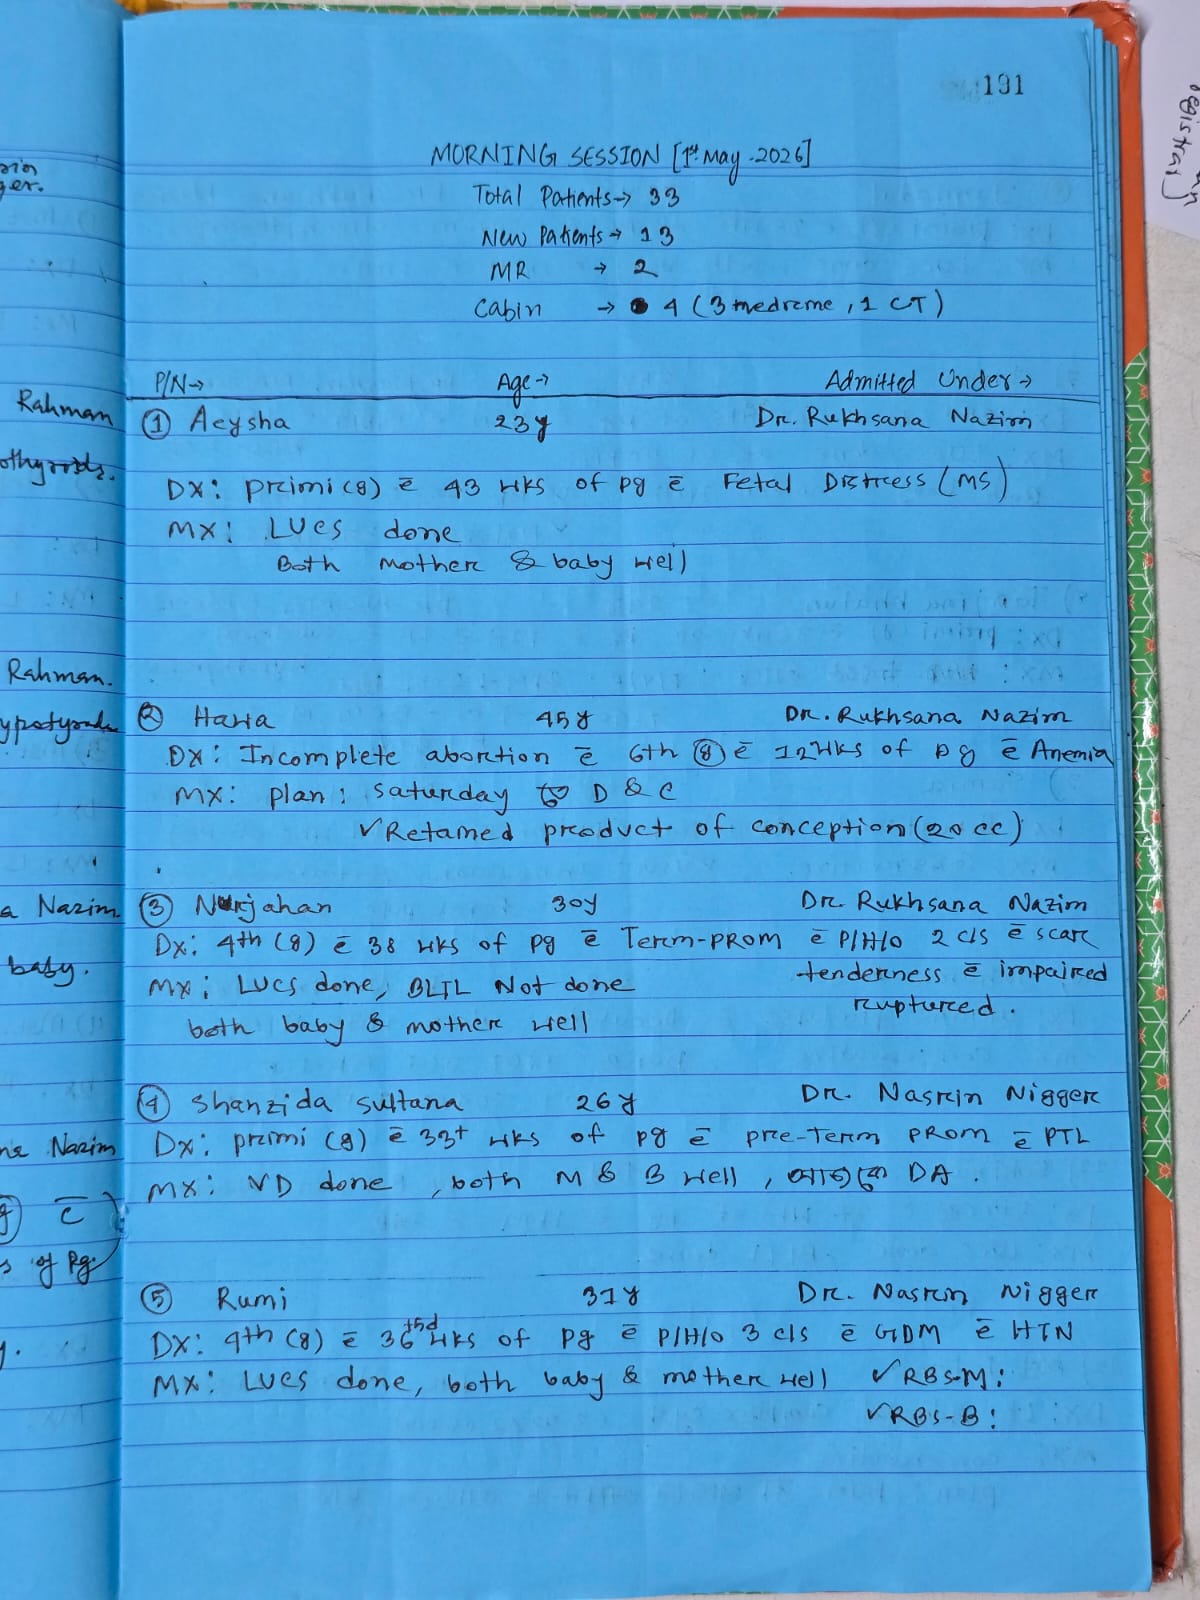 191
MORNING SESSION [1st May-2026]
Total Patients→ 33
New Patients→ 13
MR → 2
Cabin → 4 (3 medreme, 1 CT)
P/N→ Age→ Admitted Under→
① Aeysha 23y Dr. Rukhsana Nazim
DX: primi (g) c̄ 43 wks of pg c̄ Fetal Distress (MS)
MX: LUCS done
Both mother & baby well
② Hawa 45y Dr. Rukhsana Nazim
DX: Incomplete abortion c̄ 6th (g) c̄ 12wks of pg c̄ Anemia
MX: plan: saturday D & C
✓Retained product of conception (20 cc)
③ Nurjahan 30y Dr. Rukhsana Nazim
DX: 4th (g) c̄ 38 wks of pg c̄ Term-PROM c̄ P/H/O 2 c/s c̄ scar
tenderness c̄ impaired
ruptured.
MX: LUCS done, BLTL Not done
both baby & mother well
④ Shanzida Sultana 26y Dr. Nasrin Nigger
DX: primi (g) c̄ 33+ wks of pg c̄ pre-Term PROM c̄ PTL
MX: VD done, both M & B well, DA.
⑤ Rumi 31y Dr. Nasrin Nigger
DX: 4th (g) c̄ 36+5d wks of pg c̄ P/H/O 3 c/s c̄ GDM c̄ HTN
MX: LUCS done, both baby & mother well ✓RBS-M:
✓RBS-B:
Rahman
Rahman.
a Nazim
baby.
Nazim
c̄
of Pg.